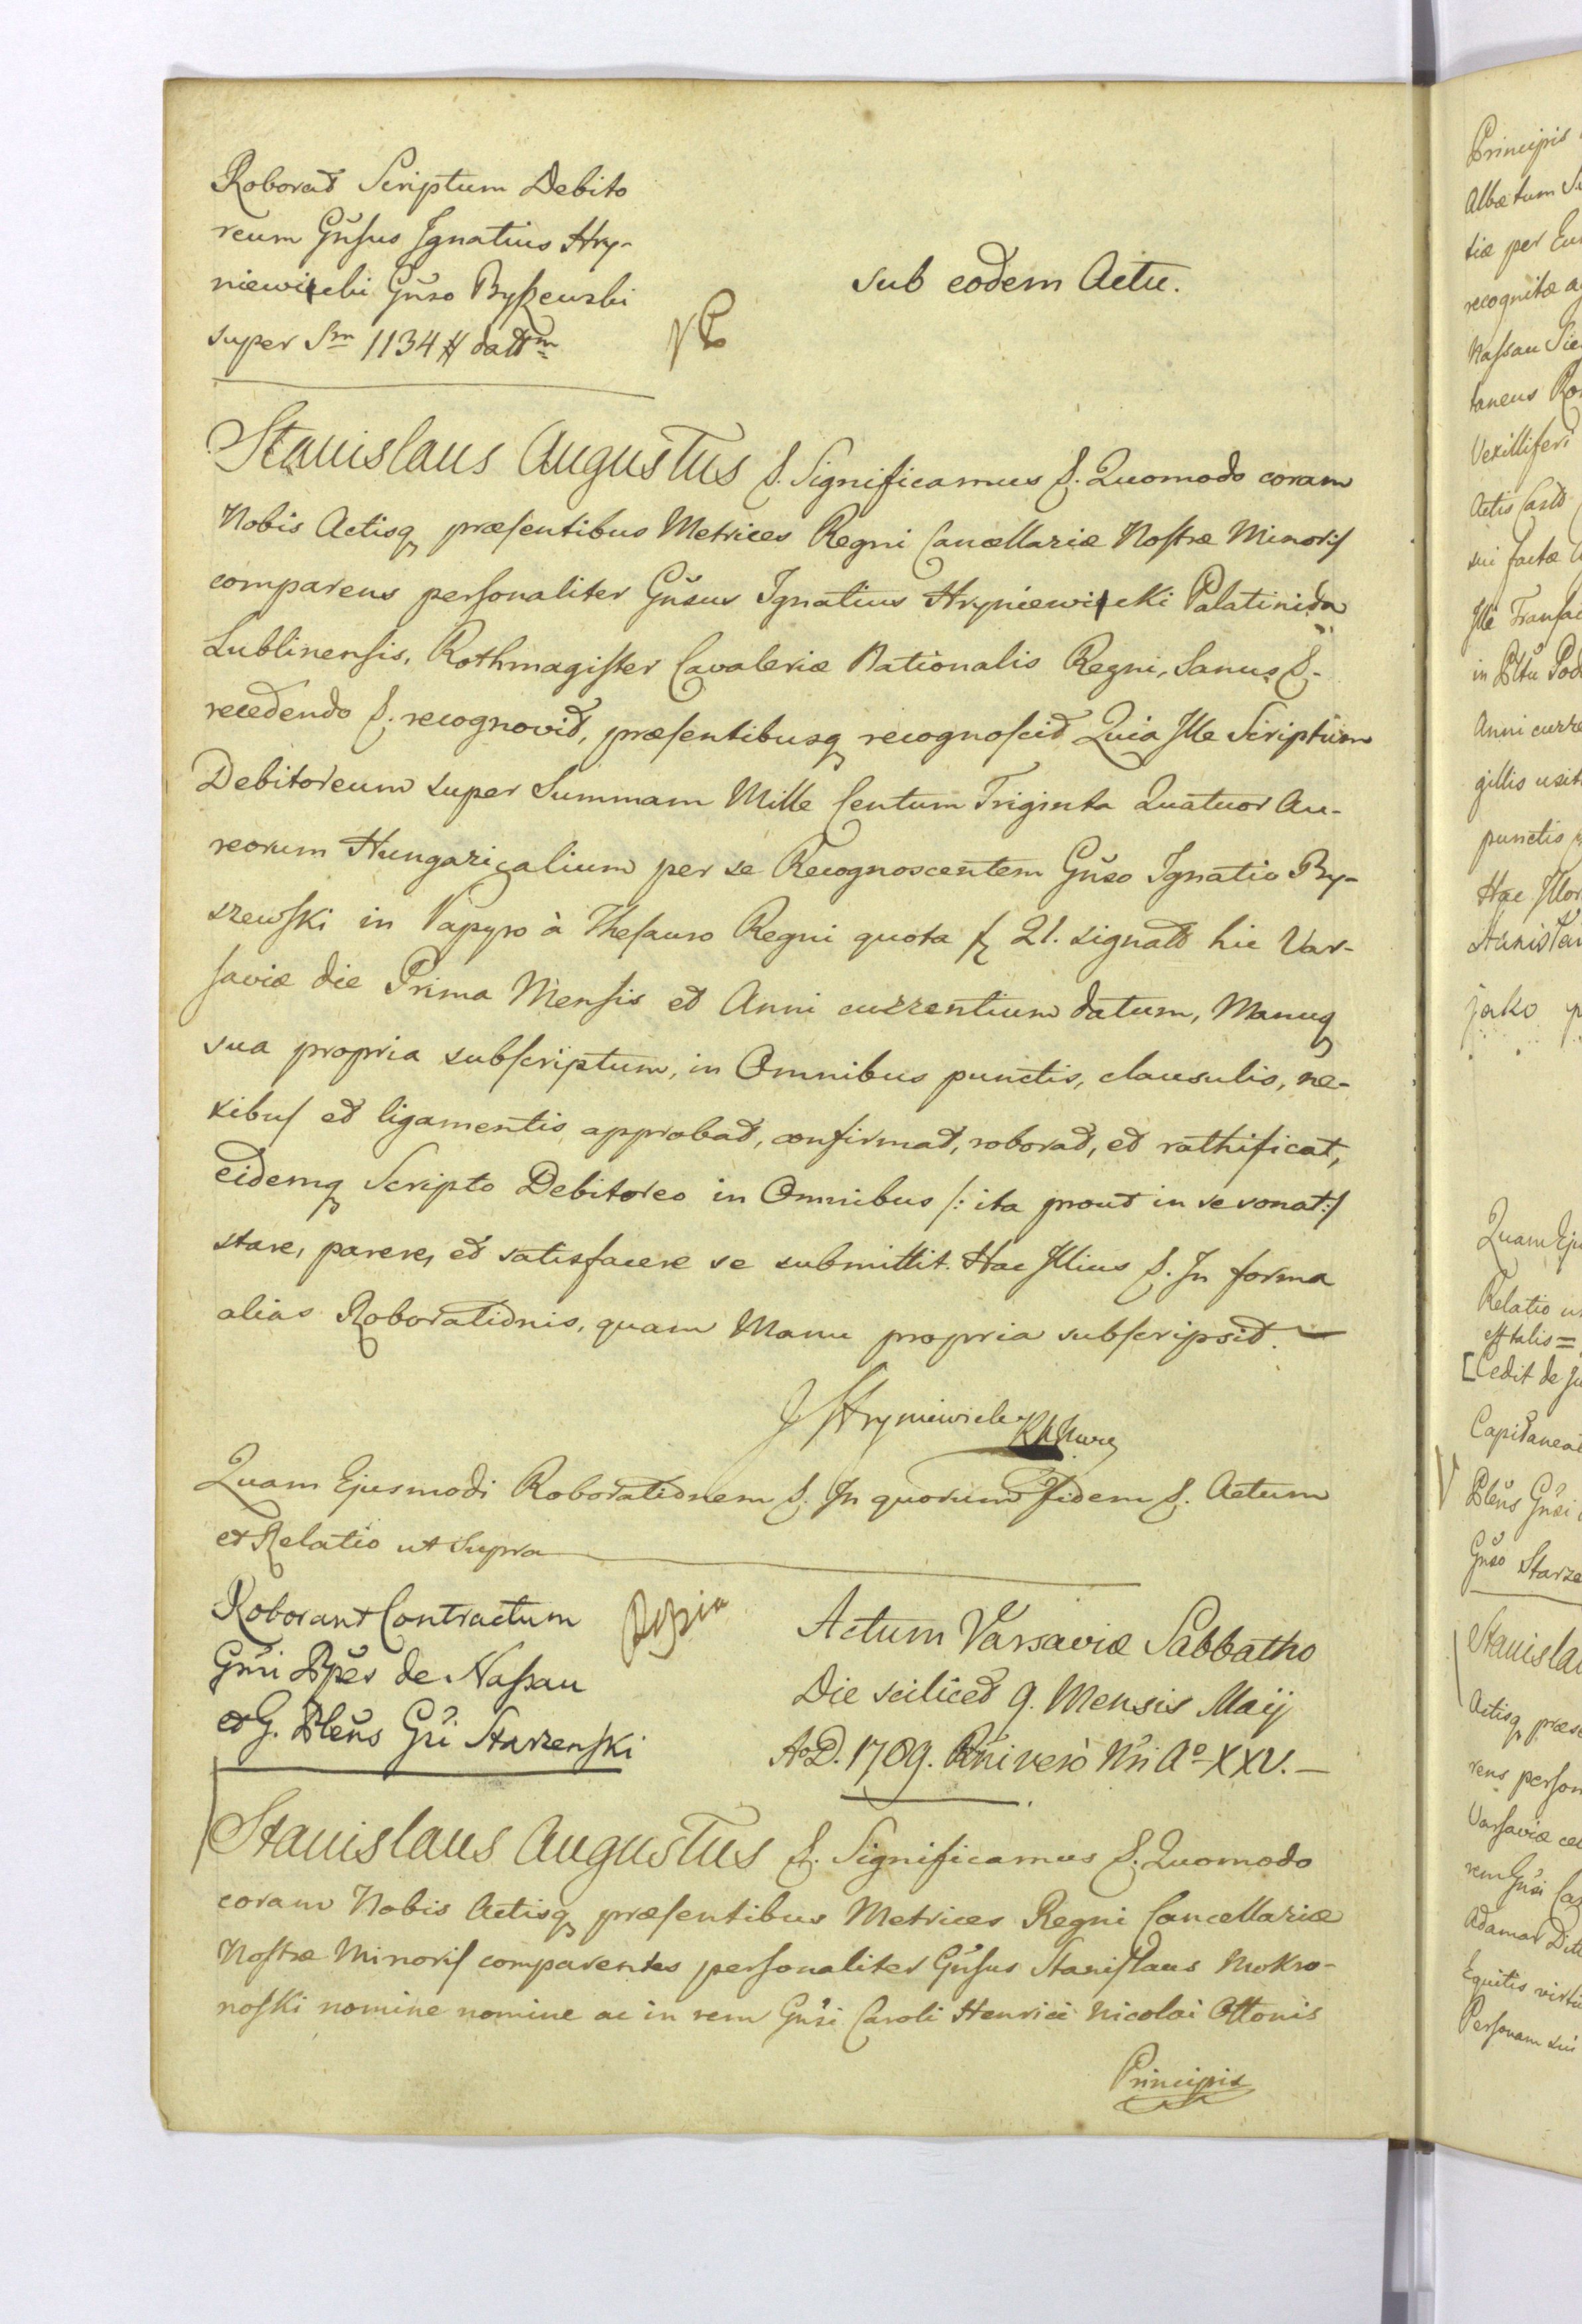 Roborat Scriptum Debito
reum Gnsus Ignatius Hry-
niewicki Gnso Byszewski
super Sm 1134 # datt m
Sub eodem Actu.
Stanislaus Augustus &. Significamus &. Quomodo coram
Nobis Actisq præsentibus Metrices Regni Cancellariæ Nostræ Minoris
comparens personaliter Gnsus Ignatius Hryniewicki Palatinida
Lublinensis, Rothmagister Cavaleriæ Nationalis Regni, Sanus &.
recedendo &. recognovit, præsentibusq recognoscit Quia Ille Scriptum
Debitoreum super Summam Mille Centum Triginta Quatuor Au-
reorum Hungaricalium per se Recognoscentem Gnso Ignatio By-
szewski in Papyro à Thesauro Regni quota f 21. signatt hic Var-
saviæ die Prima Mensis et Anni currentium datum, Manuq
sua propria subscriptum, in Omnibus punctis, clausulis, ne-
xibus et ligamentis approbat, confirmat, roborat, et rathificat,
eidemq Scripto Debitoreo in Omnibus /: ita prout in se sonat :/
stare, parere, et satisfacere se submittit. Hac Illius &. In forma
alias Roborationis, quam Manu propria subscripsit. —
J Hryniewicki
Quam Ejusmodi Roborationem &. In quorum Fidem &. Actum
et Relatio ut Supra
Roborant Contractum
Gnsi Ppes de Nassau
et G. Plens Gsi Starzenski
Actum Varsaviæ Sabbatho
Die scilicet 9. Mensis Maij
A.D. 1789. Rni vero Nri Ao XXV. —
Stanislaus Augustus &. Significamus &. Quomodo
coram Nobis Actisq præsentibus Metrices Regni Cancellariæ
Nostræ Minoris comparentes personaliter Gnsus Stanislaus Mokro-
noski nomine nomine ac in rem Gnsi Caroli Henrici Nicolai Ottonis
Principis
Principis
Albæ tum
tiæ per
recognitæ
Nassau
taneus
Vexilliferi
Actis
sui factæ
Ille
in
Anni
gillis
punctis
Hac
jako
Quam
Relatio
est talis =
[Cedit de
Plens Gnsi
Gnso
Actisq
Varsaviæ
rem Gnsi
Equitis
Personam